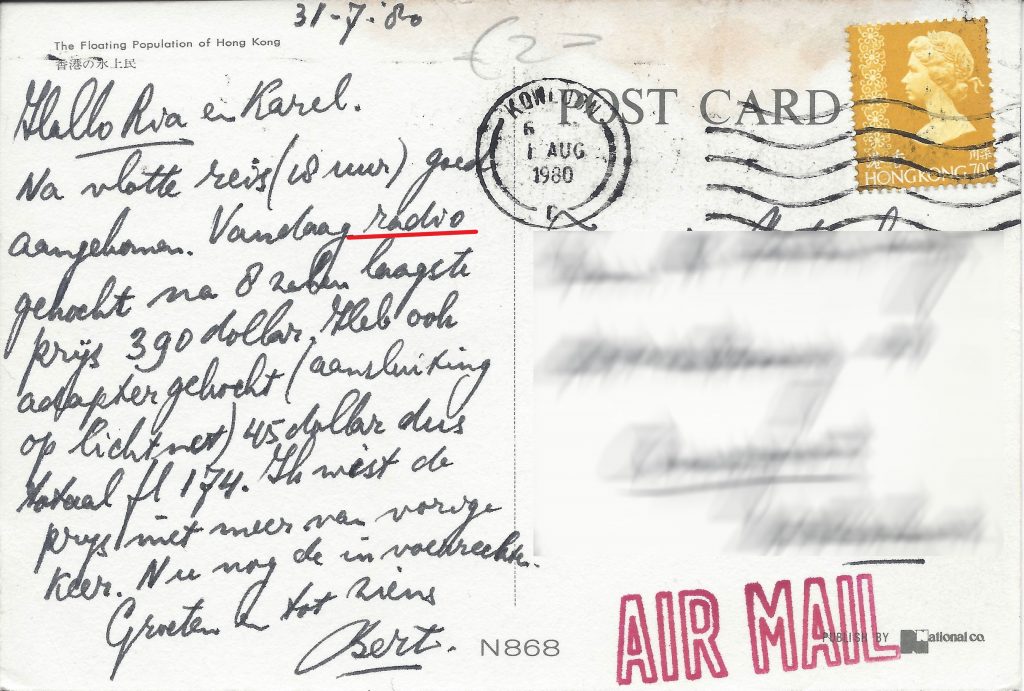 31-7-'80
The Floating Population of Hong Kong
香港の水上民
€2=
Hallo Ria en Karel.
Na vlotte reis (18 uur) goed
aangekomen. Vandaag radio
gekocht na 8 zaken laagste
prijs 390 dollar. Heb ook
adapter gekocht (aansluiting
op lichtnet) 45 dollar dus
totaal fl 174. Ik wist de
prijs niet meer van vorige
keer. Nu nog de invoerrechten.
Groeten en tot ziens
Bert.
N868
POST CARD
KOWLOON
6
1 AUG
1980
香港
HONG KONG 70¢
AIR MAIL
PUBLISH BY National co.